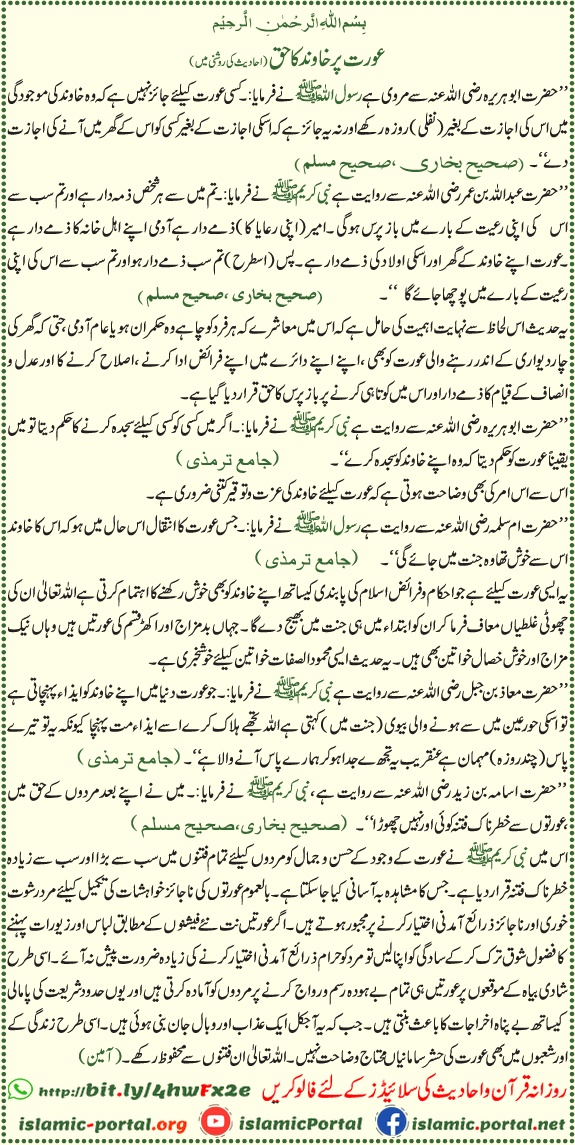 بِسْمِ اللهِ الرَّحْمٰنِ الرَّحِیْمِ
عورت پر خاوند کا حق (احادیث کی روشنی میں)
’’حضرت ابو ہریرہ رضی اللہ عنہ سے مروی ہے رسول اللہ ﷺ نے فرمایا:۔ کسی عورت کیلئے جائز نہیں ہے کہ وہ خاوند کی موجودگی
میں اس کی اجازت کے بغیر (نفلی) روزہ رکھے اور نہ یہ جائز ہے کہ اسکی اجازت کے بغیر کسی کو اس کے گھر میں آنے کی اجازت
دے‘‘۔ (صحیح بخاری ،صحیح مسلم)
’’حضرت عبداللہ بن عمر رضی اللہ عنہ سے روایت ہے نبی کریم ﷺ نے فرمایا:۔ تم میں سے ہر شخص ذمہ دار ہے اور تم سب سے
اس کی اپنی رعیت کے بارے میں باز پرس ہوگی ۔امیر (اپنی رعایا کا) ذمے دار ہے آدمی اپنے اہل خانہ کا ذمے دار ہے
۔عورت اپنے خاوند کے گھر اور اسکی اولاد کی ذمے دار ہے۔ پس (اسطرح) تم سب ذمے دار ہو اور تم سب سے اس کی اپنی
رعیت کے بارے میں پوچھا جائے گا ‘‘۔ (صحیح بخاری ،صحیح مسلم)
یہ حدیث اس لحاظ سے نہایت اہمیت کی حامل ہے کہ اس میں معاشرے کے ہر فرد کو چاہے وہ حکمران ہو یا عام آدمی ،حتی کہ گھر کی
چار دیواری کے اندر رہنے والی عورت کو بھی ،اپنے اپنے دائرے میں اپنے فرائض ادا کرنے ،اصلاح کرنے کا اور عدل و
انصاف کے قیام کا ذمے دار اور اس میں کوتاہی کرنے پر باز پرس کا حق قرار دیا گیا ہے۔
’’حضرت ابو ہریرہ رضی اللہ عنہ سے روایت ہے نبی کریم ﷺ نے فرمایا:۔ اگر میں کسی کو کسی کیلئے سجدہ کرنے کا حکم دیتا تو میں
یقیناً عورت کو حکم دیتا کہ وہ اپنے خاوند کو سجدہ کرے‘‘۔ (جامع ترمذی)
اس سے اس امر کی بھی وضاحت ہوتی ہے کہ عورت کیلئے خاوند کی عزت و توقیر کتنی ضروری ہے۔
’’حضرت ام سلمہ رضی اللہ عنہ سے روایت ہے رسول اللہ ﷺ نے فرمایا:۔ جس عورت کا انتقال اس حال میں ہو کہ اس کا خاوند
اس سے خوش تھا وہ جنت میں جائے گی‘‘۔ (جامع ترمذی)
یہ ایسی عورت کیلئے ہے جو احکام و فرائض اسلام کی پابندی کیساتھ اپنے خاوند کو بھی خوش رکھنے کا اہتمام کرتی ہے اللہ تعالیٰ ان کی
چھوٹی غلطیاں معاف فرما کر ان کو ابتداء میں ہی جنت میں بھیج دے گا ۔ جہاں بد مزاج اور اکھڑ قسم کی عورتیں ہیں وہاں نیک
مزاج اور خوش خصال خواتین بھی ہیں ۔ یہ حدیث ایسی محمود الصفات خواتین کیلئے خوشخبری ہے۔
’’حضرت معاذ بن جبل رضی اللہ عنہ سے روایت ہے نبی کریم ﷺ نے فرمایا:۔ جو عورت دنیا میں اپنے خاوند کو ایذاء پہنچاتی ہے
تو اسکی حور عین میں سے ہونے والی بیوی (جنت میں) کہتی ہے اللہ تجھے ہلاک کرے اسے ایذاء مت پہنچا کیونکہ یہ تو تیرے
پاس (چند روزہ) مہمان ہے عنقریب یہ تجھ سے جدا ہو کر ہمارے پاس آنے والا ہے‘‘۔ (جامع ترمذی)
’’حضرت اسامہ بن زید رضی اللہ عنہ سے روایت ہے ،نبی کریم ﷺ نے فرمایا:۔ میں نے اپنے بعد مردوں کے حق میں
،عورتوں سے خطرناک فتنہ کوئی اور نہیں چھوڑا‘‘۔ (صحیح بخاری،صحیح مسلم)
اس میں نبی کریم ﷺ نے عورت کے وجود کے حسن و جمال کو مردوں کیلئے تمام فتنوں میں سب سے بڑا اور سب سے زیادہ
خطرناک فتنہ قرار دیا ہے۔ جس کا مشاہدہ بہ آسانی کیا جا سکتا ہے۔ بالعموم عورتوں کی ناجائز خواہشات کی تکمیل کیلئے مرد رشوت
خوری اور ناجائز ذرائع آمدنی اختیار کرنے پر مجبور ہوتے ہیں ۔ اگر عورتیں نت نئے فیشنوں کے مطابق لباس اور زیورات پہننے
کا فضول شوق ترک کر کے سادگی کو اپنا لیں تو مرد کو حرام ذرائع آمدنی اختیار کرنے کی زیادہ ضرورت پیش نہ آئے ۔ اسی طرح
شادی بیاہ کے موقعوں پر عورتیں ہی تمام بے ہودہ رسم و رواج کرنے پر مردوں کو آمادہ کرتی ہیں اور یوں حدود شریعت کی پامالی
کیساتھ بے پناہ اخراجات کا باعث بنتی ہیں ۔ جب کہ یہ آجکل ایک عذاب اور وبال جان بنی ہوئی ہیں ۔ اسی طرح زندگی کے
اور شعبوں میں بھی عورت کی حشر سامانیاں محتاج وضاحت نہیں ۔ اللہ تعالیٰ ان فتنوں سے محفوظ رکھے۔ (آمین)
روزانہ قرآن و احادیث کی سلائیڈز کے لئے فالو کریں http://bit.ly/4hwFx2e
islamic-portal.org islamicPortal islamic-portal.net